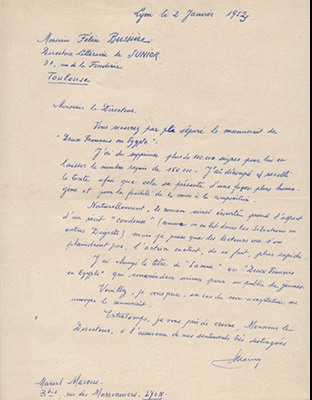 Lyon le 2 Janvier 1952
Monsieur Félix Bussière
Directeur Littéraire de JUNIOR
31, rue de la Fonderie
Toulouse
Monsieur le Directeur.
Vous recevrez par pli séparé le manuscrit de
"Deux Français en Egypte".
J'ai du supprimer plus de signes pour lui en
laisser le nombre requis de 160.000 - J'ai découpé et recollé
le texte afin que cela se présente d'une façon plus homo-
gène et pour la facilité de la mise à la composition.
Naturellement, le roman ainsi écourté prend l'aspect
d'un récit "condensé" (comme on en lit dans les Sélections ou
autres Digests) mais je pense que les lecteurs ne s'en
plaindront pas, l'action étant, de ce fait, plus rapide.
J'ai changé le titre de "Lamia" en "Deux Français
en Egypte" qui conviendra mieux pour un public de jeunes.
Veuillez, je vous prie, en cas de non-acceptation, me
renvoyer le manuscrit.
Entretemps, je vous prie de croire, Monsieur le
Directeur, à l'assurance de mes sentiments très distingués
Marcel Marcus
3 bis rue des Marronniers - LYON.